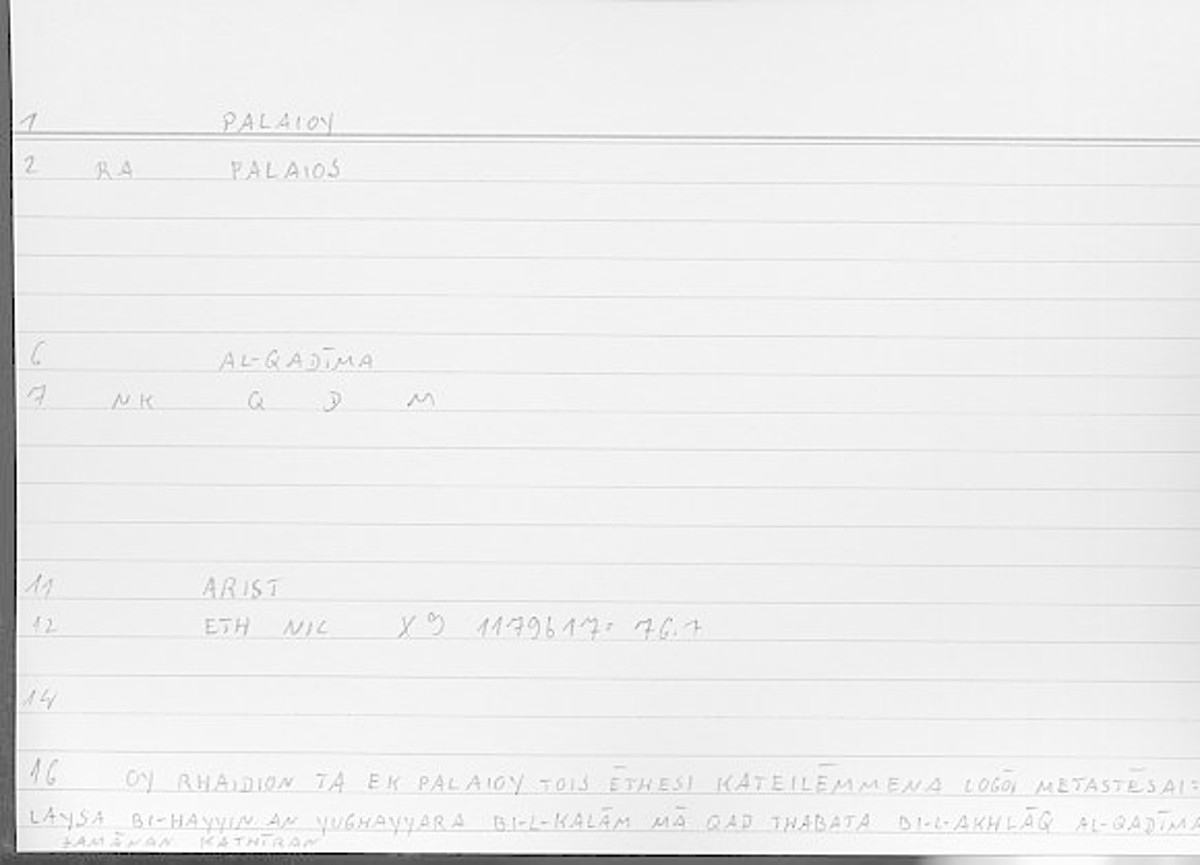 1 PALAIOY
2 RA PALAIOS
6 AL-QADĪMA
7 NK Q D M
11 ARIST
12 ETH NIC X 9 1179b17= 76.7
14
16 OY RHAIDION TA EK PALAIOY TOIS ĒTHESI KATEILĒMMENA LOGŌI METASTĒSAI=
LAYSA BI-HAYYIN AN YUGHAYYARA BI-L-KALĀM MĀ QAD THABATA BI-L-AKHLĀQ AL-QADĪMA
ZAMĀNAN KATHĪRAN